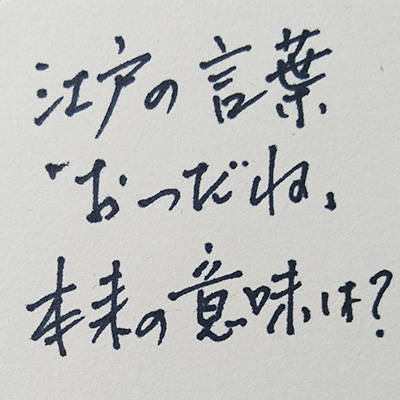 江戸の言葉
「おつだね」
本来の意味は?